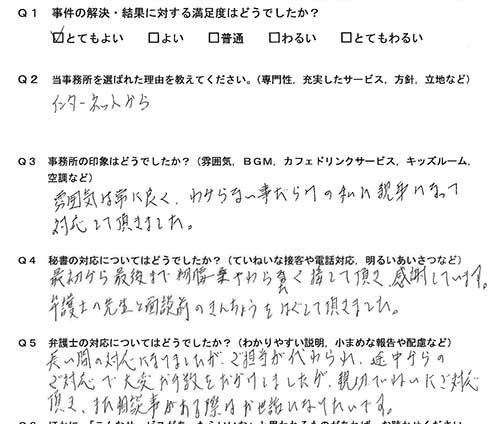 Q1 事件の解決・結果に対する満足度はどうでしたか？
☑とてもよい □よい □普通 □わるい □とてもわるい
Q2 当事務所を選ばれた理由を教えてください。（専門性，充実したサービス，方針，立地など）
インターネットから
Q3 事務所の印象はどうでしたか？（雰囲気，BGM，カフェドリンクサービス，キッズルーム，
空調など）
雰囲気は常に良く，わからない事だらけの私に親身になって
対応して頂きました。
Q4 秘書の対応についてはどうでしたか？（ていねいな接客や電話対応，明るいあいさつなど）
最初から最後まで やわらかく接して頂き、感謝しています。
弁護士の先生と面談前のきんちょうをほぐして頂きました。
Q5 弁護士の対応についてはどうでしたか？（わかりやすい説明，小まめな報告や配慮など）
長い間の対応になりましたが、ご担当が代わられ、途中からの
ご対応で大変お手数をおかけしましたが、親切ていねいにご対応
頂き、また相談事がある際はお世話になりたいです。